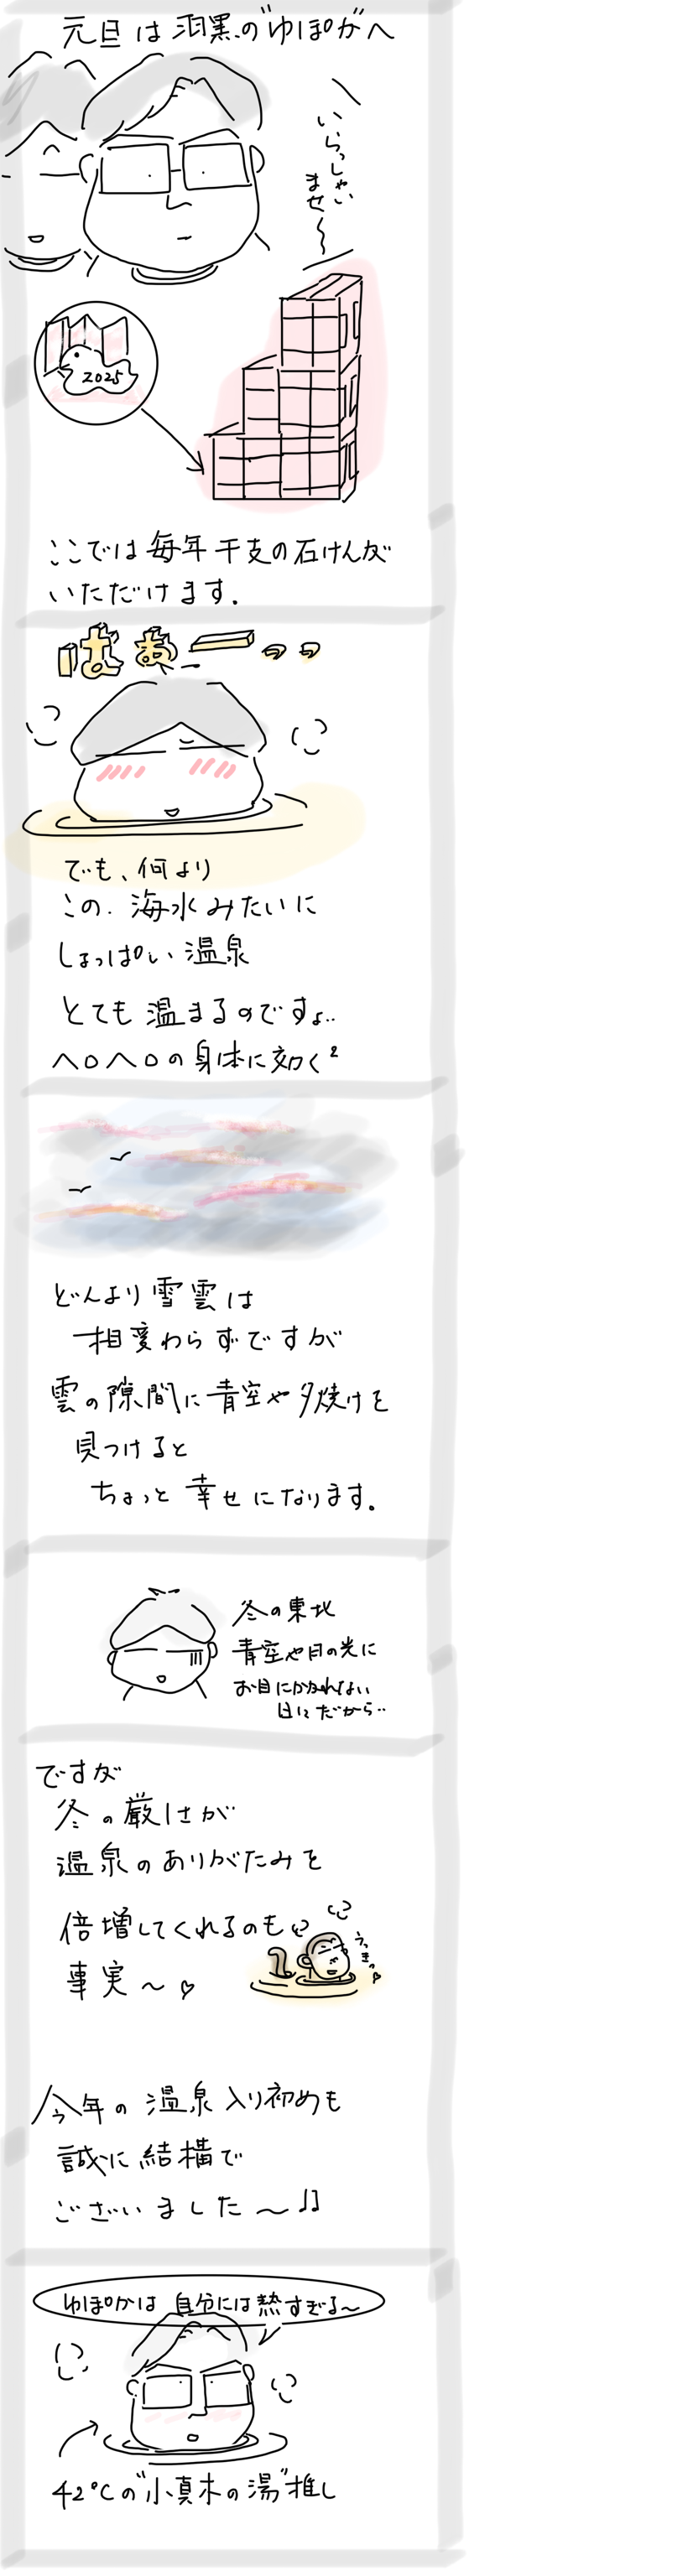 元旦は羽黒の"ゆぽか"へ
いらっしゃい
ませ〜
2025
ここでは毎年干支の石けんが
いただけます.
はぁーっっ
でも、何より
この.海水みたいに
しょっぱい温泉
とても温まるのですょ..
ヘロヘロの身体に効く²
どんより雪雲は
相変わらずですが
雲の隙間に青空や夕焼けを
見つけると
ちょっと幸せになります.
冬の東北
青空や日の光に
お目にかかれない
日々だから..
ですが
冬の厳しさが
温泉のありがたみを
倍増してくれるのも
事実〜♡
うっきっ♡
今年の温泉入り初めも
誠に結構で
ございました〜♫
ゆぽかは自分には熱すぎる〜
42℃の"小真木の湯"推し